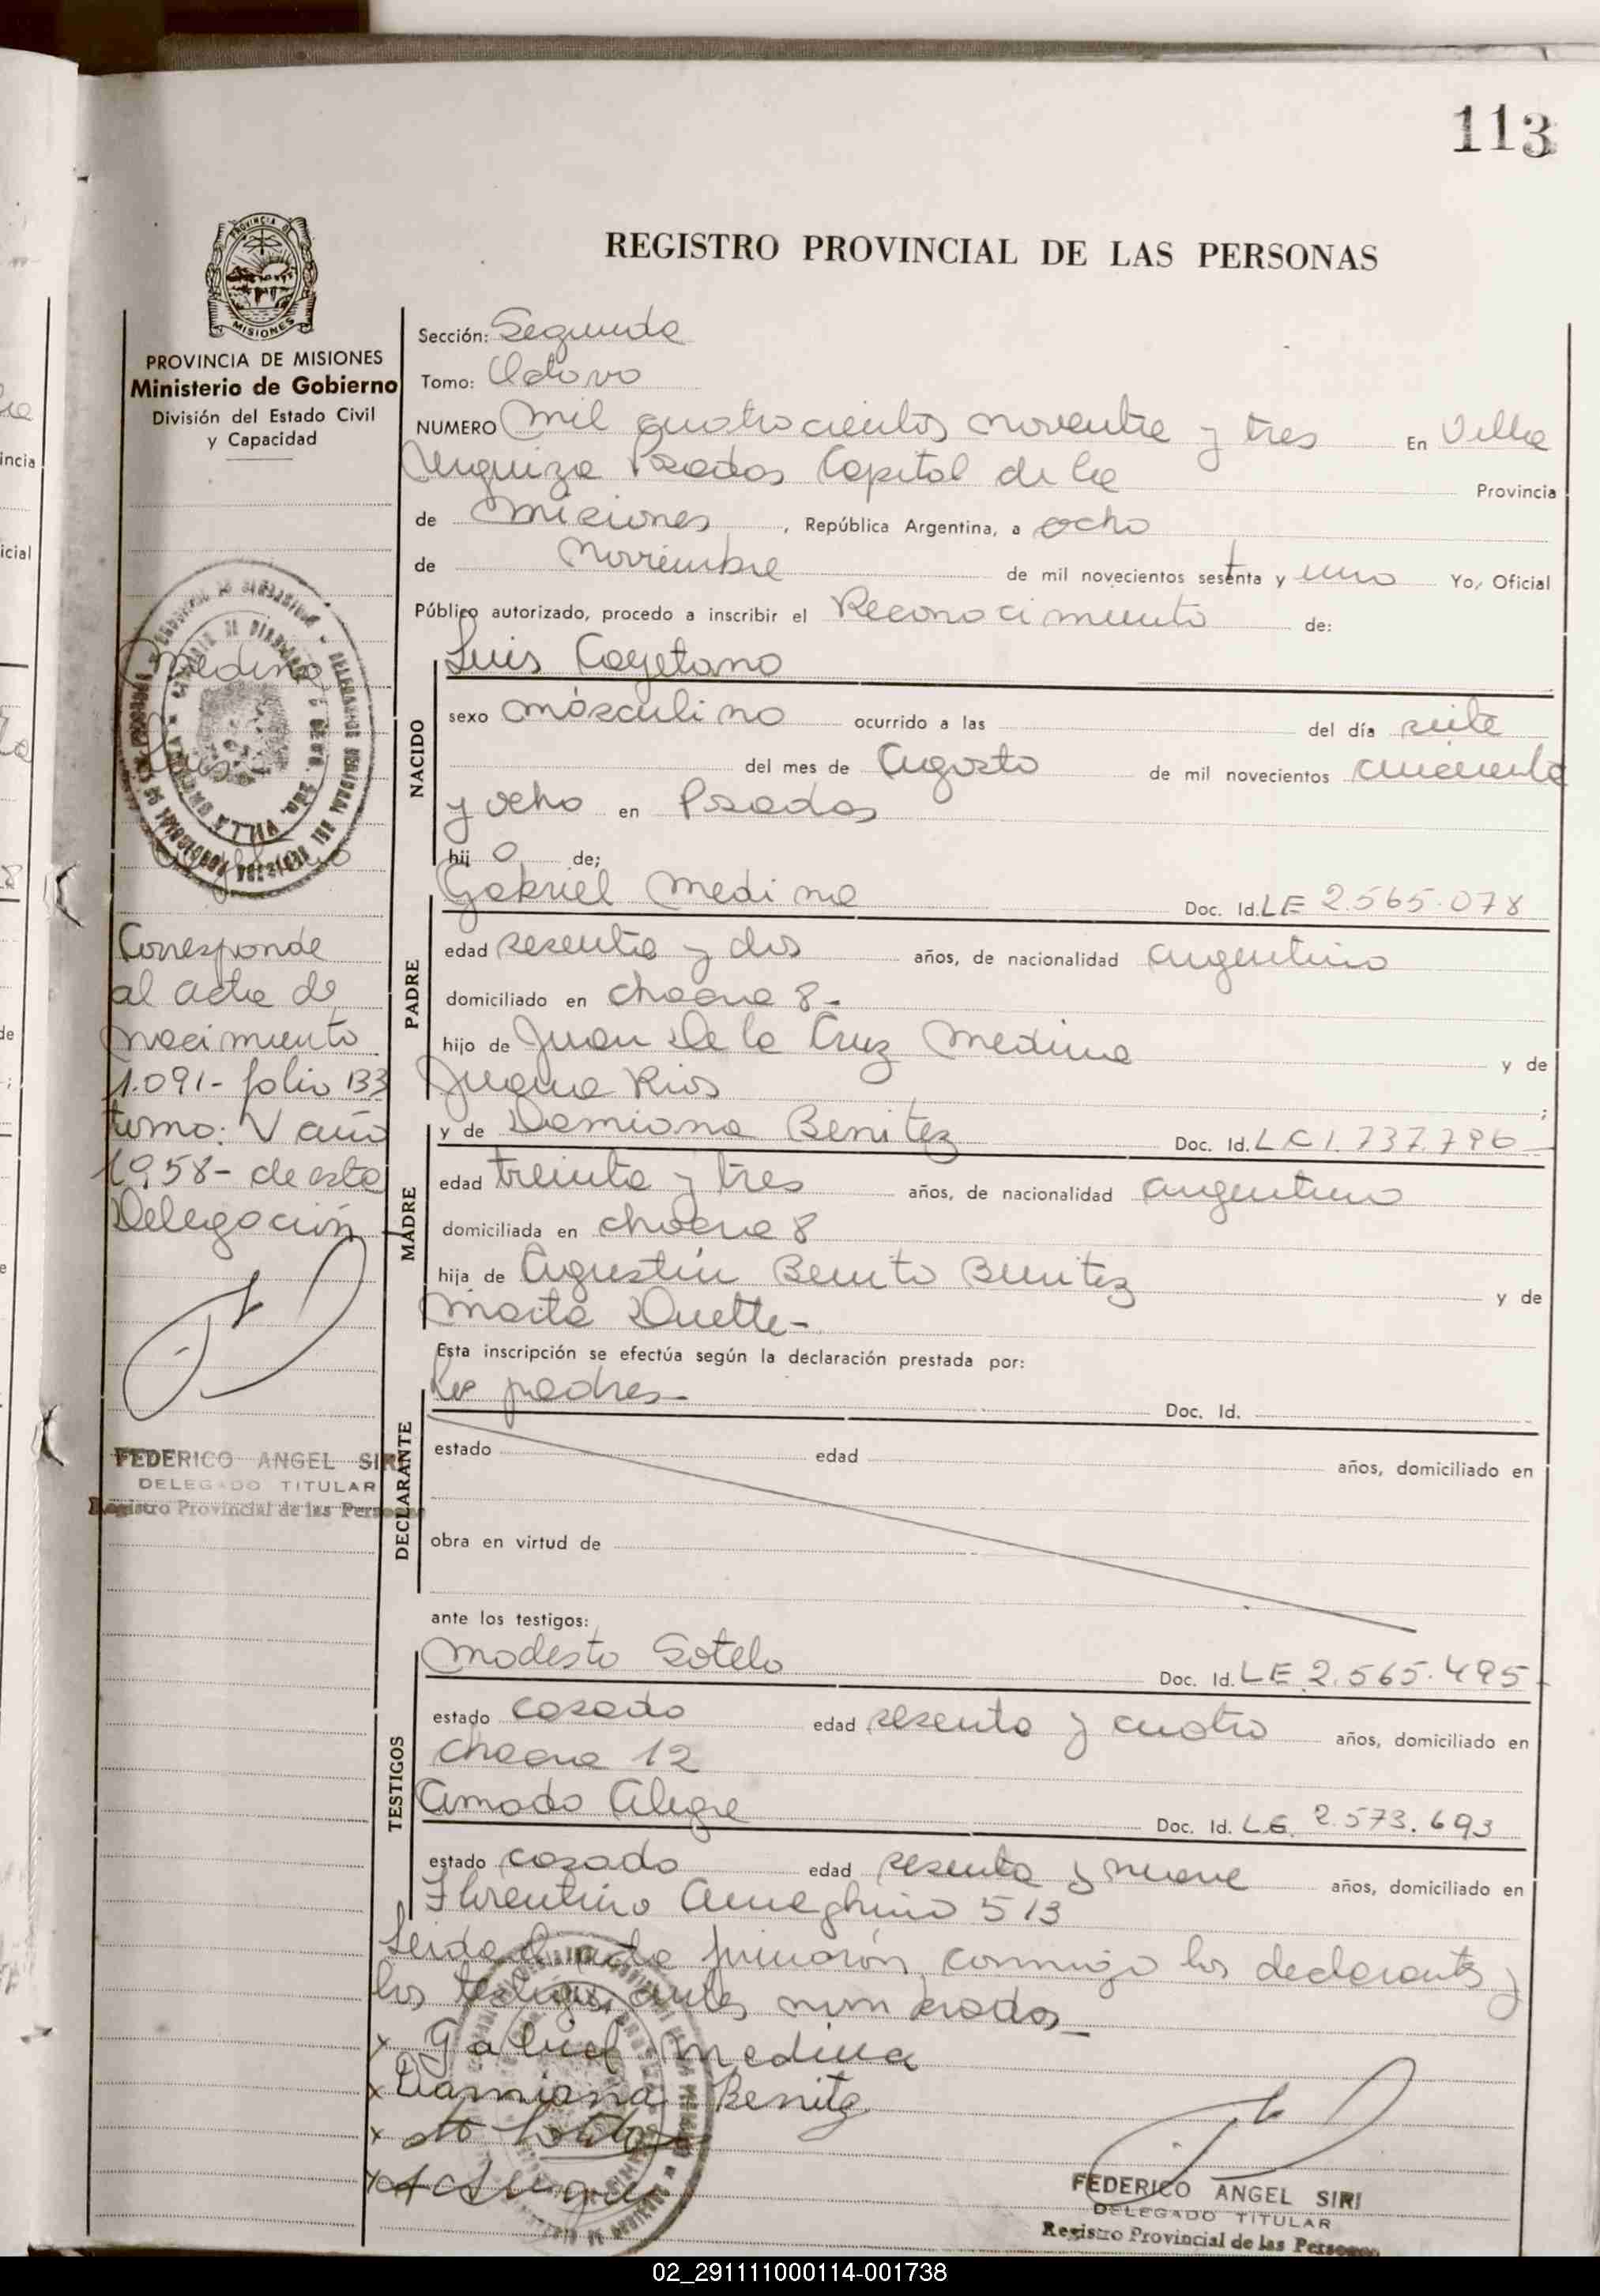 113
REGISTRO PROVINCIAL DE LAS PERSONAS
PROVINCIA DE MISIONES
Ministerio de Gobierno
División del Estado Civil
y Capacidad
Medina
Luis
Cayetano
Corresponde
al acta de
nacimiento
1.091- folio 133
tomo: V año
1958- de esta
Delegación
FEDERICO ANGEL SIRI
DELEGADO TITULAR
Registro Provincial de las Personas
Sección: Segunda
Tomo: Octavo
NUMERO Mil quatrocientos noventa y tres En Villa
Urquiza Posadas Capital de la Provincia
de Misiones, República Argentina, a ocho
de Noviembre de mil novecientos sesenta y uno Yo, Oficial
Público autorizado, procedo a inscribir el Reconocimiento de:
NACIDO
Luis Cayetano
sexo másculino ocurrido a las del día siete
del mes de Agosto de mil novecientos cincuenta
y ocho en Posadas
hijo de;
PADRE
Gabriel Medina Doc. Id. LE 2.565.078
edad sesenta y dos años, de nacionalidad argentino
domiciliado en chacra 8-
hijo de Juan De la Cruz Medina y de
Juana Rios ;
MADRE
y de Damiana Benitez Doc. Id. LC 1.737.796
edad treinta y tres años, de nacionalidad argentina
domiciliada en chacra 8
hija de Agustín Benito Benitez y de
Marta Duette-
Esta inscripción se efectúa según la declaración prestada por:
DECLARANTE
los padres- Doc. Id.
estado edad años, domiciliado en
obra en virtud de
ante los testigos:
TESTIGOS
Modesto Sotelo Doc. Id. LE 2.565.495
estado casado edad sesenta y cuatro años, domiciliado en
chacra 12
Amado Alegre Doc. Id. LE. 2.573.693
estado casado edad sesenta y nueve años, domiciliado en
Florentino Ameghino 513
Leida el acta firmarón conmigo los declarantes y
los testigos antes nombrados-
x Gabriel Medina
x Damiana Benitez
FEDERICO ANGEL SIRI
DELEGADO TITULAR
Registro Provincial de las Personas
02_291111000114-001738